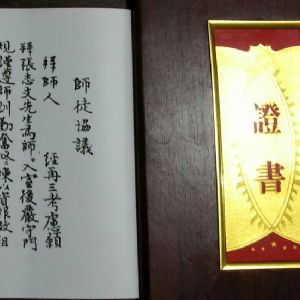 師徒協議
拜師人 經再三考慮願
拜張志文先生為師。入室後嚴守門
規謹遵師訓勤奮練以資報效祖
證書